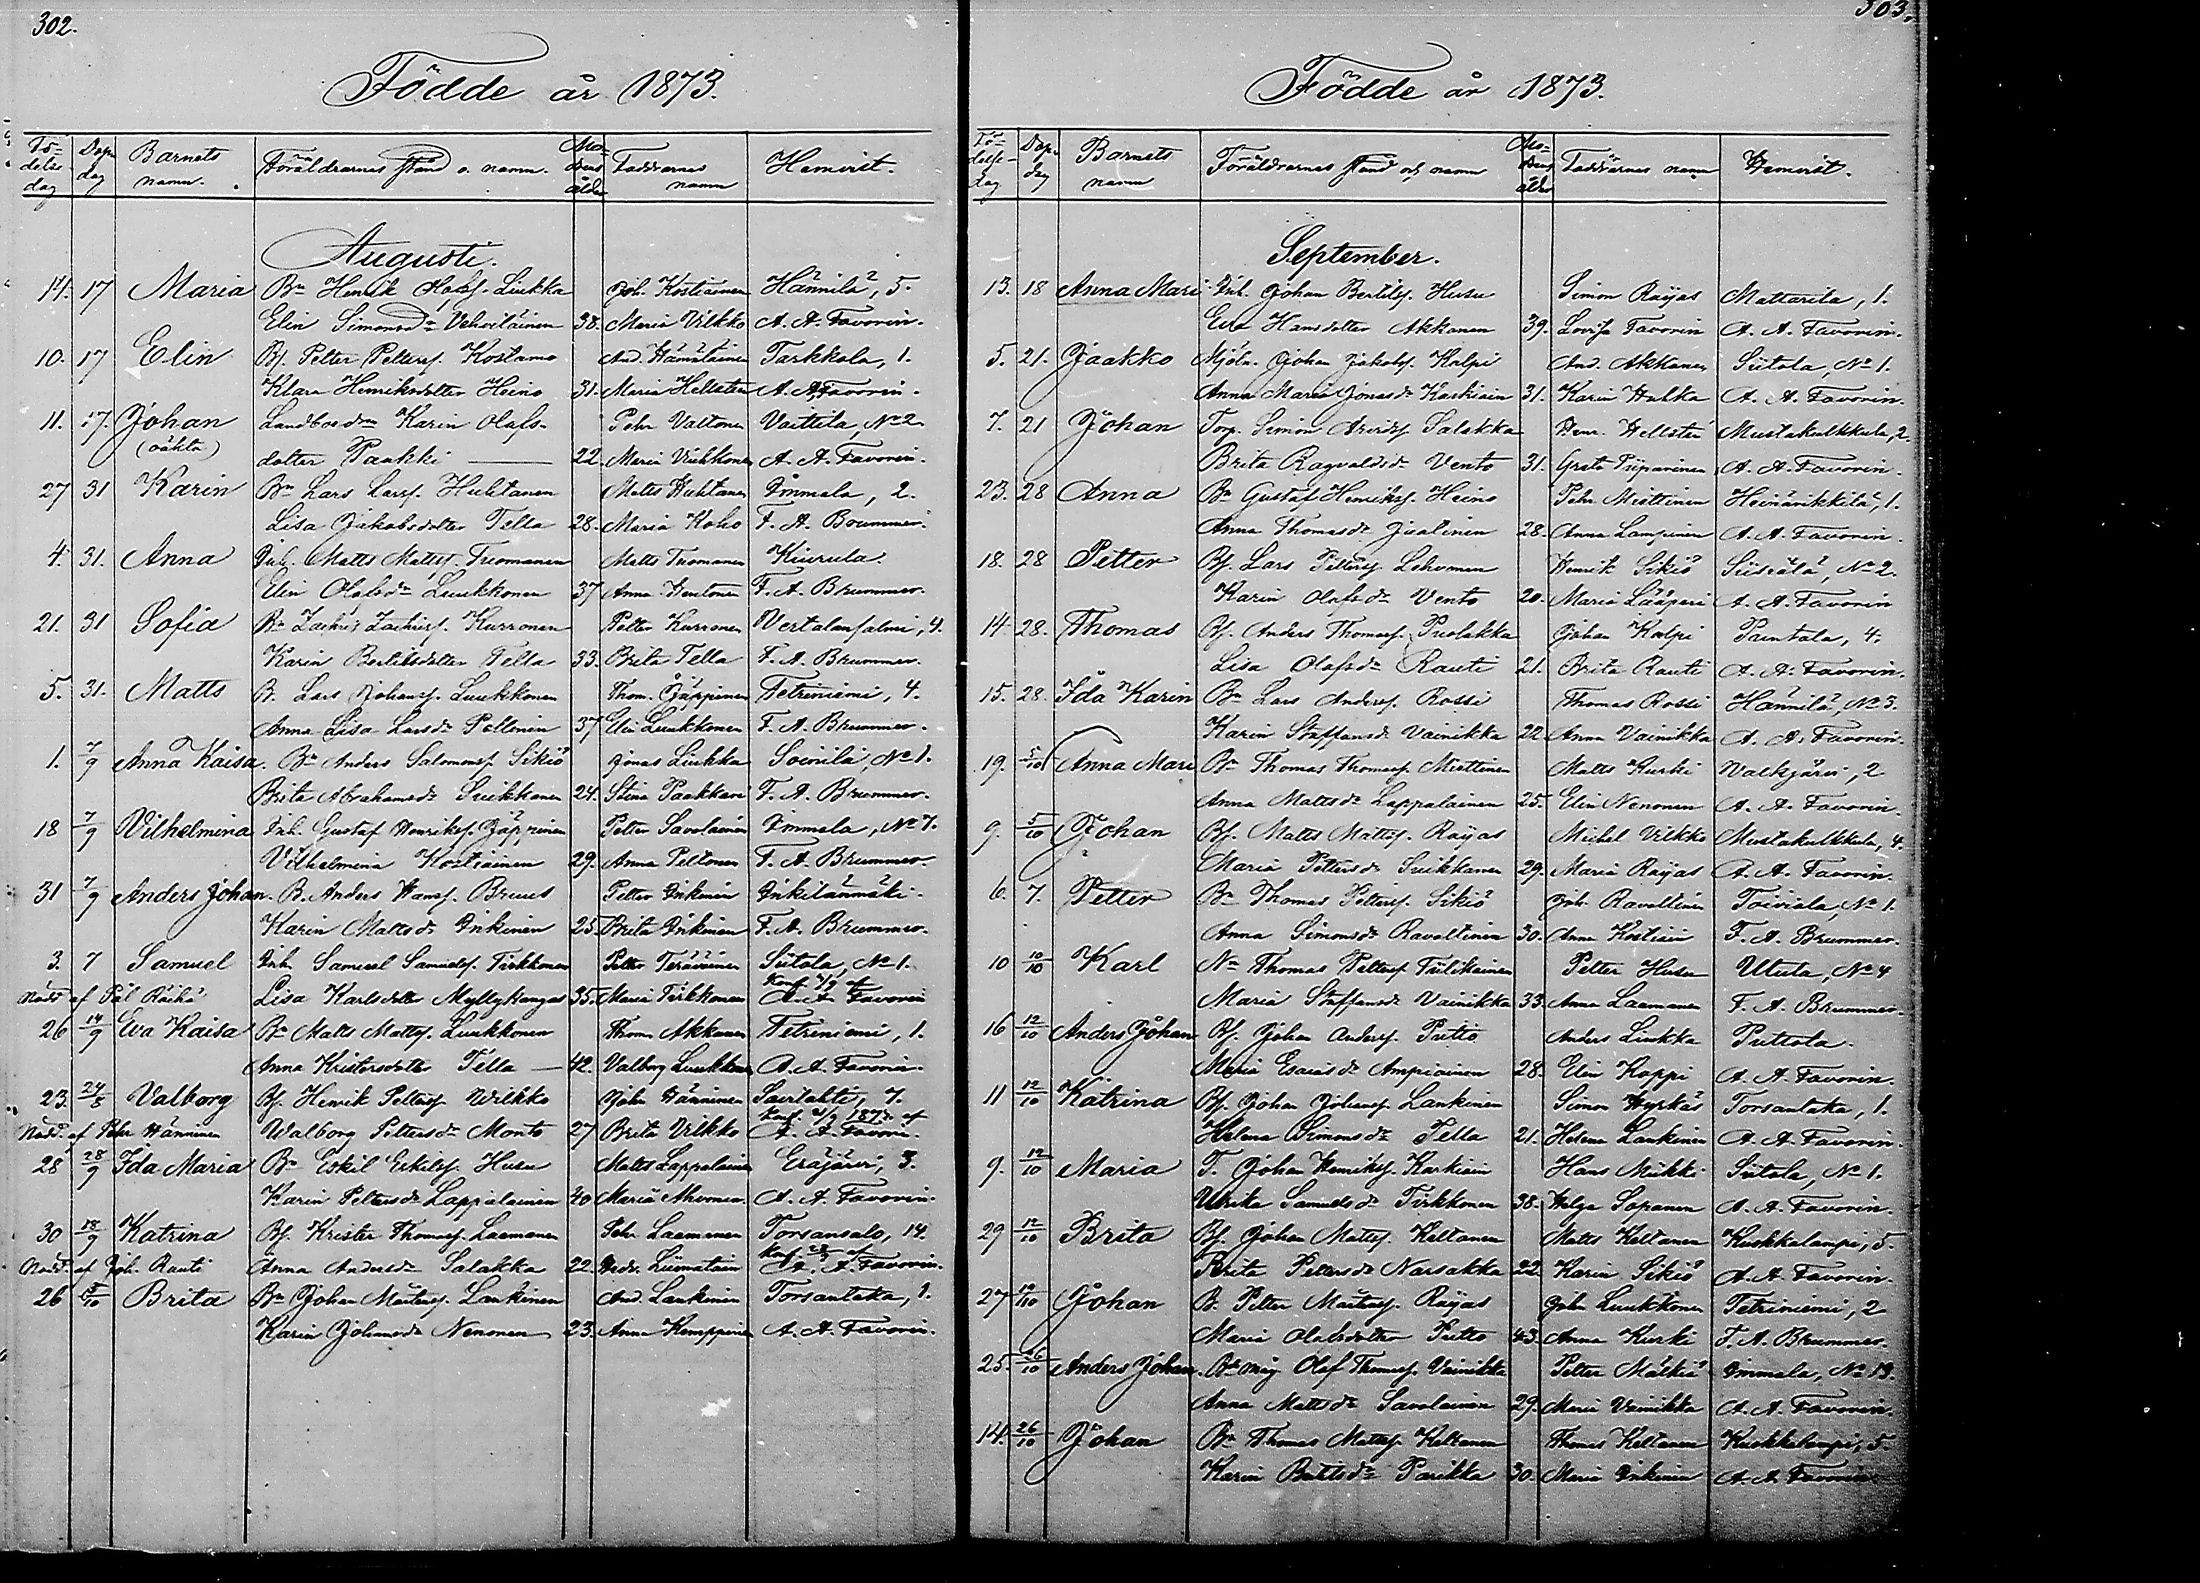 302.
Födde år 1873.
Fö-delse dag Dop dag Barnets namn. Föräldrarnes stånd o. namn. Mo-drens ålder Faddrarnes namn Hemvist.
Augusti.
14. 17 Maria Bn Henrik Olofsf. Liukka Joh. Kostiainen Hännilä, 5.
Elin Simonsdr Vehviläinen 38. Maria Vilkko A. A. Favorin.
10. 17 Elin Bf. Petter Pettersf. Kostamo And. Hämäläinen Tarkkola, 1.
Klara Henriksdotter Heino 31. Maria Hellsten A. A. Favorin.
11. 17. Johan Landbodn Karin Olofs- Pehr Valtonen Vaittila, No 2
(oäkta) dotter Paukki 22. Maria A. A. Favorin.
27 31 Karin Bn Lars Larsf. Huhtanen Matts Huhtanen Immola, 2.
Lisa Jakobsdotter Tella 28. Maria Koho F. A. Brummer.
4. 31. Anna Inh. Matts Mattsf. Tuomanen Matts Tuomanen Kiurula.
Elin Olofsdr Luukkonen 37 Anna F. A. Brummer.
21. 31 Sofia Bn Zachris Zachrisf. Kurronen Petter Kurronen 4.
Karin Bertilsdotter Tella 33. Brita Tella F. A. Brummer.
5. 31. Matts B. Lars Johansf. Luukkonen Thom. Jäppinen Tetriniemi, 4.
Anna Lisa Larsdr Peltonen 37 Elin Luukkonen F. A. Brummer.
1. 7/9 Anna Kaisa. Bn Anders Salomonsf. Sikiö Jonas Liukka Soinila, No 1.
Brita Abrahamsdr Suikkanen 24. Stina Paakkari F. A. Brummer.
18 7/9 Vilhelmina Inh. Gustaf Henriksf. Jäppinen Petter Savolainen Immola, No 7.
Vilhelmina Kostiainen 29. Anna Peltonen F. A. Brummer.
31 7/9 Anders Johan. B. Anders Hansf. Bruus Petter Inkinen Inkilänmäki.
Karin Mattsdr Inkinen 25. Brita Inkinen F. A. Brummer.
3. 7 Samuel Inh. Samuel Samuelsf. Tirkkonen Petter Teräväinen Siitola, No 1.
Nöddöpt af Pål Räihä Lisa Karlsdotter Myllykangas 35. Maria Tirkkonen A. A. Favorin
26 14/9 Eva Kaisa Bn Matts Mattsf. Luukkonen Thom Akkanen Tetriniemi, 1.
Anna Kristersdotter Tella 42. Valborg Luukkonen A. A. Favorin.
23. 24/8 Valborg Bf. Henrik Pettersf. Wilkko Johan Hänninen Saarlahti, 7.
Nödd. af Pehr Hänninen Walborg Pettersdr Monto 27 Brita Vilkko A. A. Favorin.
28 28/9 Ida Maria Bn Eskil Eskilsf. Husu Matts Lappalainen Eräjärvi, 3.
Karin Pettersdr Lappalainen 40 Maria Ahvonen A. A. Favorin.
30 18/9 Katrina Bf. Krister Thomasf. Laamanen Pehr Laamanen Torsansalo, 14.
Nödd. af Joh. Rauti Anna Andersdr Salakka 22. Hedv. Liimatain A. A. Favorin.
26 5/10 Brita Bn Johan Mårtensf. Lankinen And. Lankinen Torsantaka, 1.
Karin Johansdr Nenonen 23. Anna Kemppinen A. A. Favorin.
303.
Födde år 1873.
Fö-delse-dag Dop-dag Barnets namn Föräldrarnes stånd och namn Mo-drens ålder Faddrarnes namn Hemvist.
September.
13. 18 Anna Mari Inh. Johan Bertilsf. Husu Simon Raijas Mattarila, 1.
Eva Hansdotter Akkanen 39. Lovisa Favorin A. A. Favorin.
5. 21. Jaakko Mjöln. Johan Jakobsf. Kalpi And. Akkanen Siitola, No 1.
Anna Maria Jonasdr Karkiain 31. Karin Hulka A. A. Favorin.
7. 21 Johan Torp. Simon Salakka Henr. Hellsten Mustakulkkula, 2.
Brita Ragvaldsdr Vento 31. Greta Piiparinen A. A. Favorin.
23. 28 Anna Bn Gustaf Henriksf. Heino Pehr Miettinen Heinänikkilä, 1.
Anna Thomasdr Juolinen 28. Anna Lampinen A. A. Favorin.
18. 28 Petter Bf. Lars Pettersf. Lehvonen Henrik Sikiö Siisiälä, No 2.
Karin Olofsdr Vento 20. Maria Lääperi A. A. Favorin
14. 28. Thomas Bf. Anders Thomasf. Puolakka Johan Kalpi Puntala, 4.
Lisa Olofsdr Rauti 21. Brita Rauti A. A. Favorin.
15. 28. Ida Karin Bn Lars Andersf. Rossi Thomas Rossi Hännilä, No 3.
Karin Staffansdr Vainikka 22. Anna Vainikka A. A. Favorin.
19. 5/10 Anna Mari Bn Thomas Thomasf. Miettinen Matts Kurki Valkjärvi, 2
Anna Mattsdr Lappalainen 25. Elin Nenonen A. A. Favorin.
9. 5/10 Johan Bf. Matts Mattsf. Raijas Michel Vilkko Mustakulkkula, 4.
Maria Pettersdr Suikkanen 29. Maria Raijas A. A. Favorin.
6. 7. Petter Bn Thomas Pettersf. Sikiö Joh. Ravattinen Toiviala, No 1.
Anna Simonsdr Ravattinen 30. Anna Kostiain F. A. Brummer.
10 10/10 Karl Nn Thomas Pettersf. Tiilikainen Petter Husu Utula, No 4
Maria Staffansdr Vainikka 33. Anna Laamanen F. A. Brummer.
16 12/10 Anders Johan Bf. Johan Andersf. Putto Anders Liukka Puttola.
Maria Esaiasdr Ampiainen 28. Elin Koppi A. A. Favorin.
11 12/10 Katrina Bf. Johan Johansf. Lankinen Simon Hyrkäs Torsantaka, 1.
Helena Simonsdr Tella 21. Helena Lankinen A. A. Favorin.
9. 12/10 Maria T. Johan Henriksf. Karkiain Hans Miikki Siitola, No 1.
Ulrika Samuelsdr Tirkkonen 38. Helga Sopanen A. A. Favorin.
29 12/10 Brita Bf. Johan Mattsf. Keltanen Matts Keltanen Kuokkalampi, 5.
Brita Pettersdr Narsakka 22. Karin Sikiö A. A. Favorin.
27 19/10 Johan B. Petter Mårtensf. Raijas Johan Luukkonen Tetriniemi, 2
Maria Olofsdotter Putto 43. Anna Kurki F. A. Brummer.
25. 26/10 Anders Johan. Bn måg Olof Thomasf. Vainikka Petter Mälkiä Immola, No 13.
Anna Mattsdr Savolainen 29. Maria Vainikka A. A. Favorin.
14. 26/10 Johan Bn Thomas Mattsf. Keltanen Thomas Keltanen Kuokkalampi, 5.
Karin Bertilsdr Parikka 30. Maria Inkinen A. A. Favorin